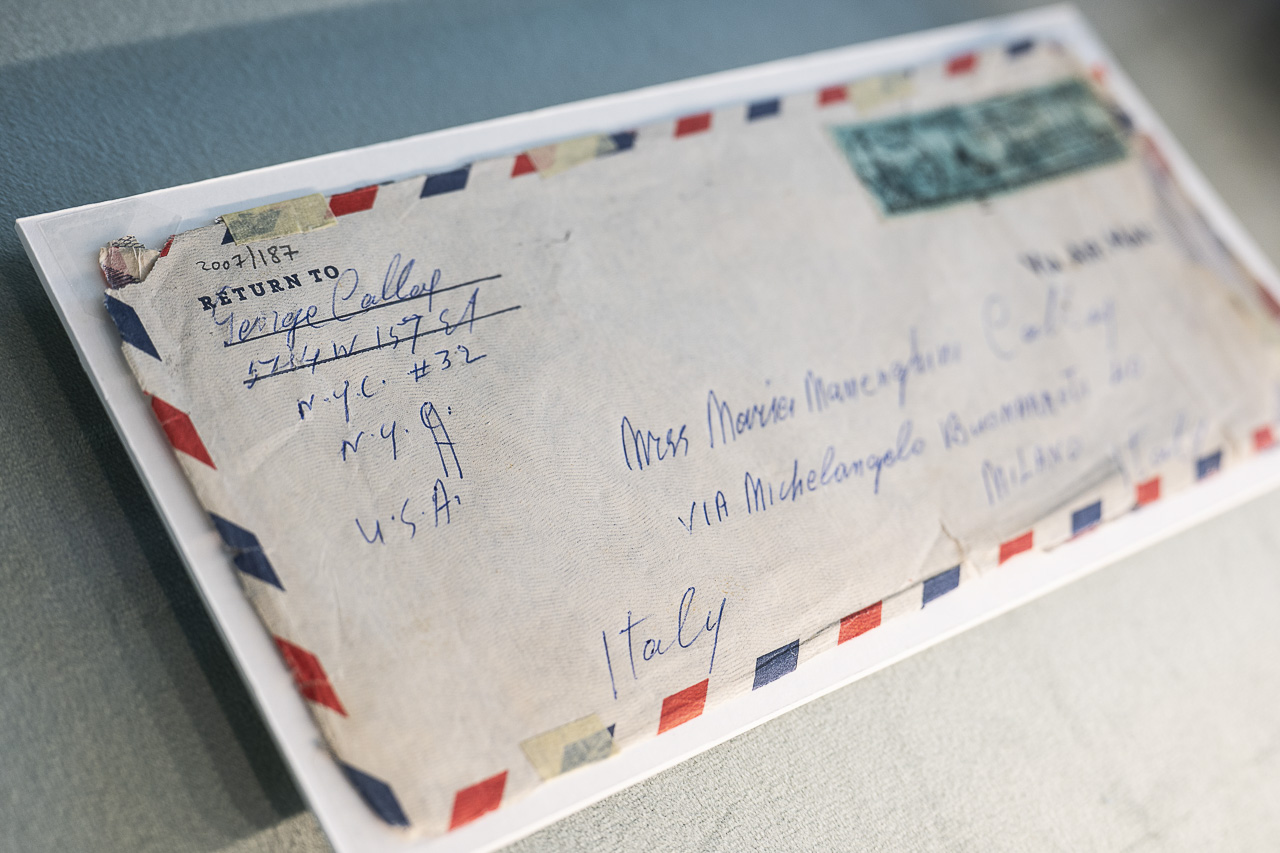 2007/187
RETURN TO
George Callas
W 157 St
N.Y.C. #32
N.Y.
U.S.A.
VIA AIR MAIL
Maria Meneghini Callas
VIA Michelangelo Buonarroti
MILANO Italy
Italy